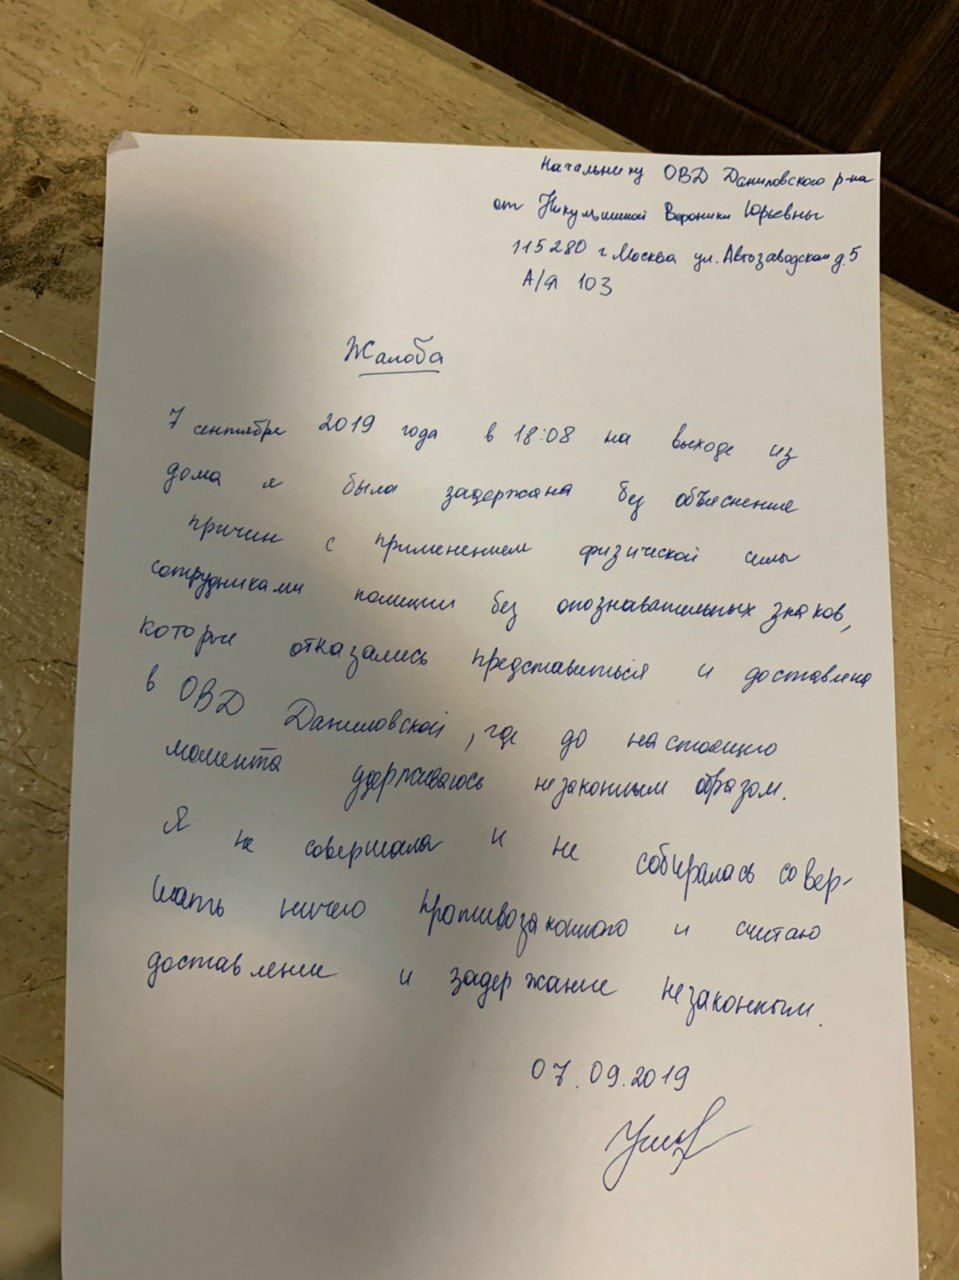 Начальнику ОВД Даниловского р-на
от Никульшиной Вероники Юрьевны
115280 г Москва ул. Автозаводская д.5
А/Я 103
Жалоба
7 сентября 2019 года в 18:08 на выходе из
дома я была задержана без объяснения
причин с применением физической силы
сотрудниками полиции без опознавательных знаков,
которые отказались представиться и доставлена
в ОВД Даниловской, где до настоящего
момента удерживаюсь незаконным образом.
Я не совершала и не собиралась совер-
шать ничего противозаконного и считаю
доставление и задержание незаконным.
07.09.2019